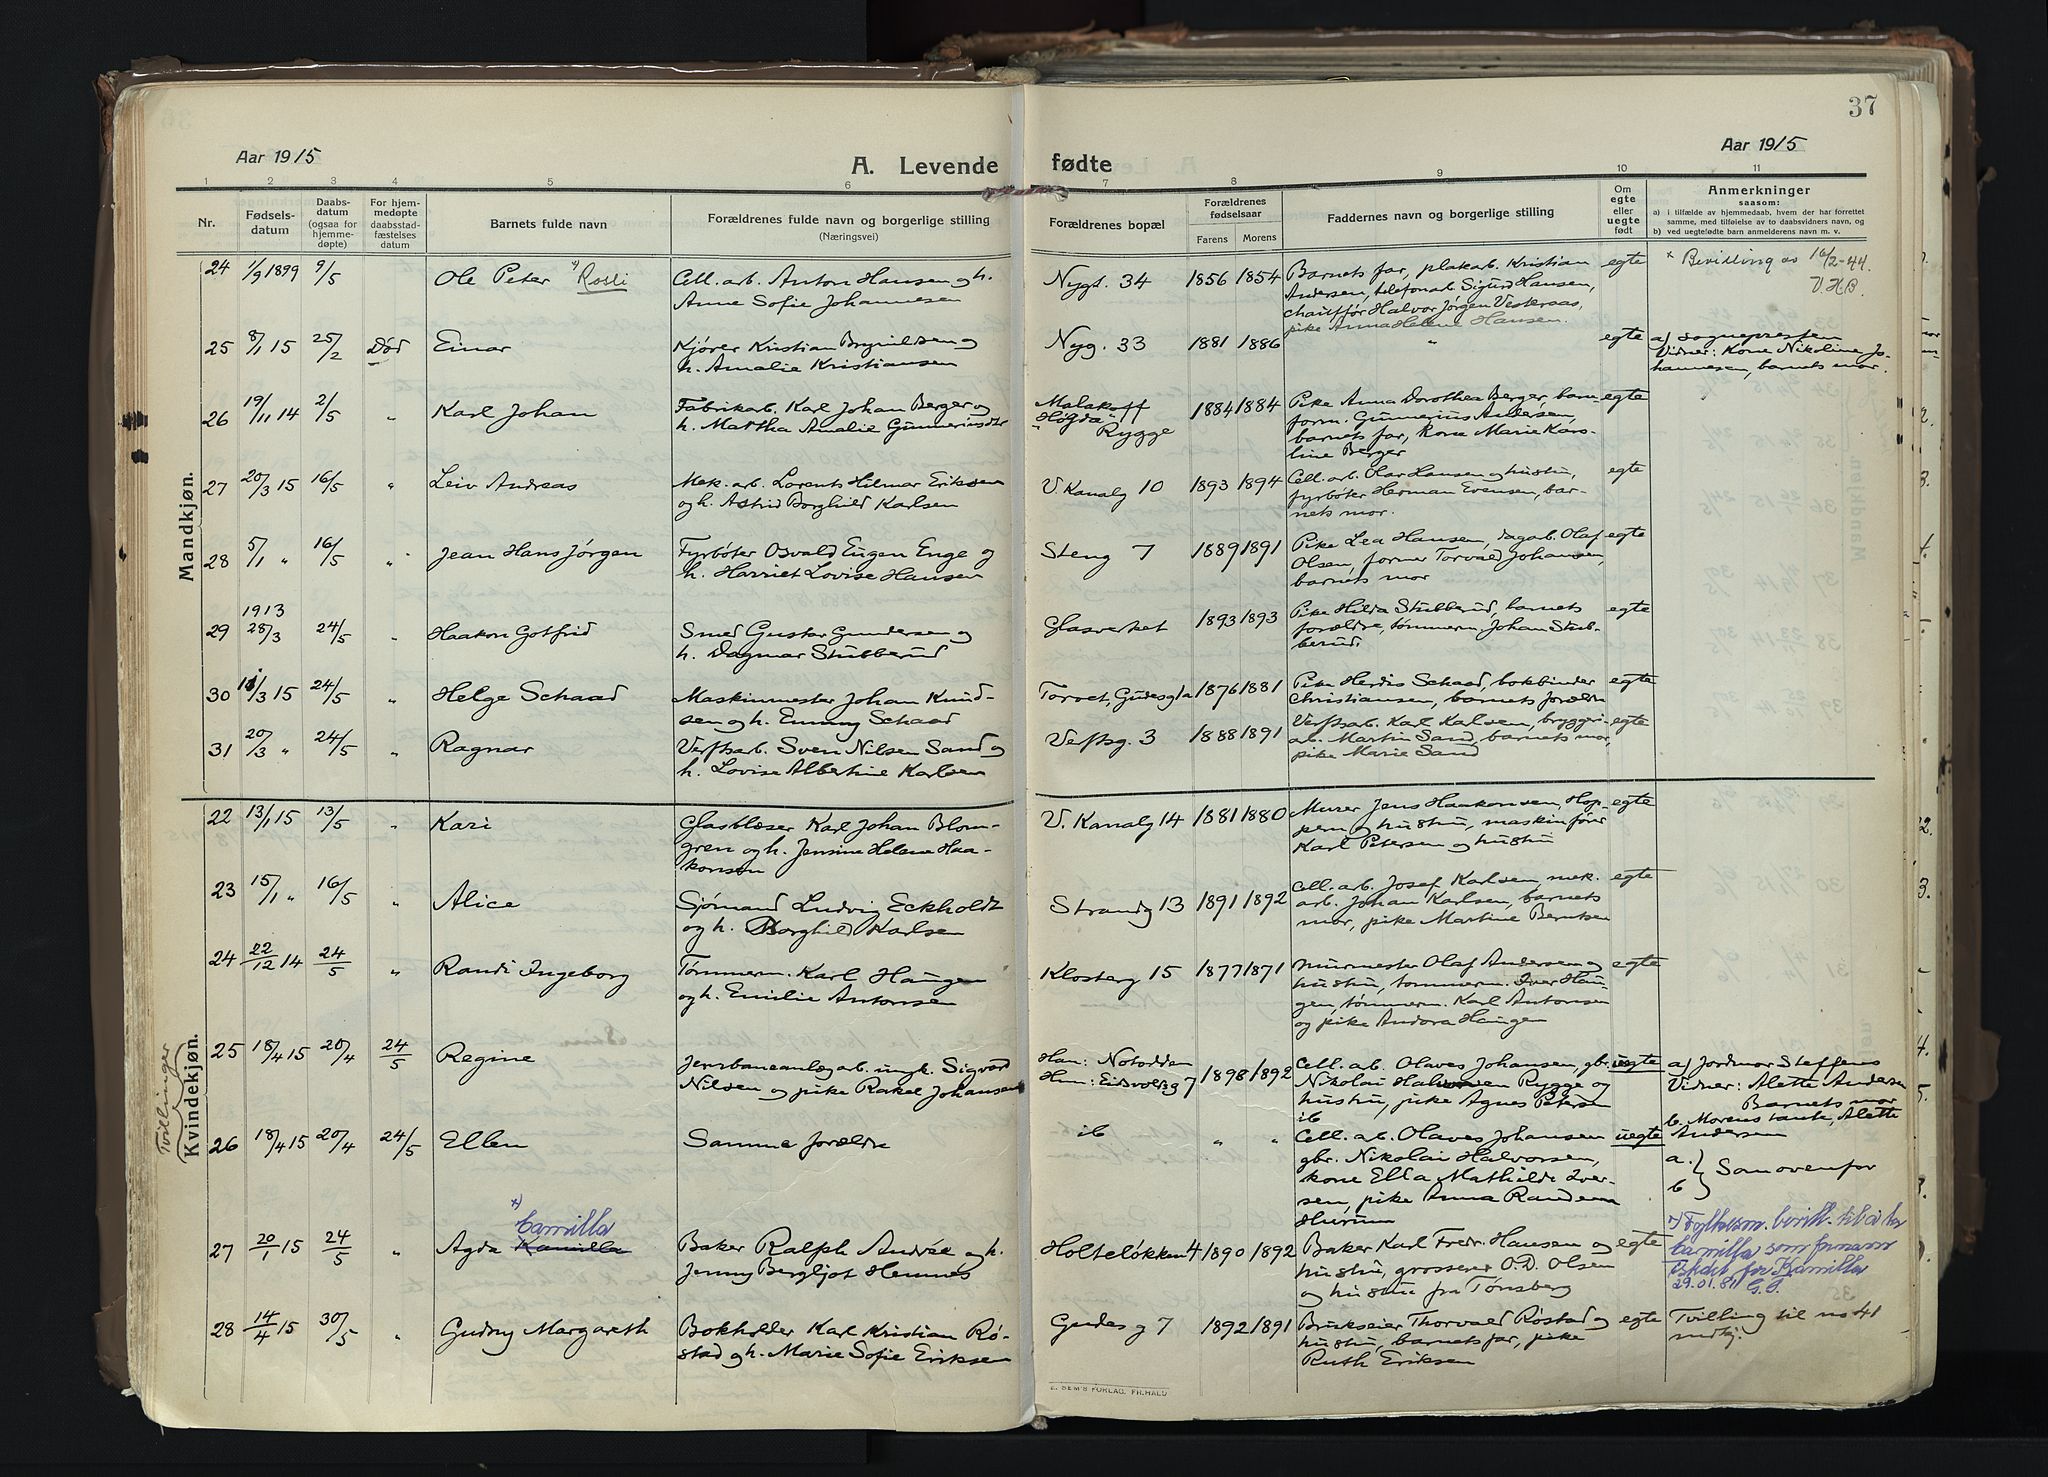 37
Aar 1915
A. Levende fødte
Aar 1915
1 2 3 4 5 6 7 8 9 10 11
Nr.
Fødsels-
datum
Daabs-
datum
(ogsaa for
hjemme-
døpte)
For hjem-
medøpte
daabsstad-
fæstelses
datum
Barnets fulde navn
Forældrenes fulde navn og borgerlige stilling
(Næringsvei)
Forældrenes bopæl
Forældrenes
fødselsaar
Farens Morens
Faddernes navn og borgerlige stilling
Om
egte
eller
uegte
født
Anmerkninger
saasom:
a) i tilfælde av hjemmedaab, hvem der har forrettet
samme, med tilføielse av to daabsvidners navn, og
b) ved uegtefødte barn anmelderens navn m. v.
Mandkjøn.
24 1/9 1899 9/5 Ole Peter x) Rosli
Cell. arb. Anton Hansen og h.
Anne Sofie Johannesen
Nygt. 34 1856 1854
Barnets far, plakarb. Kristian
Andersen, telefonarb. Sigurd Hansen,
chauffør Halvor Jørgen Vesteraas,
pike Anna Helene Hansen.
egte
x Bevilling av 16/2-44.
V.H.B.
25 8/1 15 25/2 Død Einar
Kjører Kristian Brynildsen og
h. Amalie Kristiansen
Nyg. 33 1881 1886 " egte
a) Sognepresten
Vidner: Kone Nikoline Jo-
hannesen, barnets mor.
26 19/11 14 2/5 " Karl Johan
Fabrikarb. Karl Johan Berger og
h. Martha Amalie Gunneriusdtr
Malakoff
"Høgda"
Rygge
1884 1884
Pike Anna Dorothea Berger,
form. Gunnerius Andersen,
barnets far, Kone Marie Karo-
line Berger
egte
27 20/3 15 16/5 " Leiv Andreas
Mek. arb. Lorents Hilmar Eriksen
og h. Astrid Borghild Karlsen
V. Kanalg 10 1893 1894
Cell. arb. Olav Hansen og hustru,
fyrbøter Herman Evensen, bar-
nets mor.
egte
28 5/1 " 16/5 " Jean Hans Jørgen
Fyrbøter Osvald Eugen Enge og
h. Harriet Lovise Hansen
Steng 7 1889 1891
Pike Lea Hansen, dagarb. Olaf
Olsen, former Torvald Johansen,
barnets mor
egte
29 1913 28/3 24/5 " Haakon Gotfrid
Smed Gustav Gundersen og
h. Dagmar Stubberud
Glasverket 1893 1893
Pike Hilda Stubberud, barnets
forældre, tømmerm. Johan Stub-
berud.
egte
30 11/3 15 24/5 " Helge Schaad
Maskinmester Johan Knud-
sen og h. Emmy Schaad
Torvet, Gudesg 1a 1876 1881
Pike Herdis Schaad, bokbinder
Christiansen, barnets forældre
egte
31 20/3 " 24/5 " Ragnar
Verftsarb. Sven Nilsen Sand og
h. Lovise Albertine Karlsen
Veftsg. 3 1888 1891
Verftsarb. Karl Karlsen, bryggeri-
arb. Martin Sand, barnets mor,
pike Marie Sand
egte
Kvindekjøn.
22 13/1 15 13/5 " Kari
Glasblæser Karl Johan Blom-
gren og h. Jensine Helene Haa-
konsen
V. Kanalg 14 1881 1880
Murer Jens Haakonsen, Hop-
pern og hustru, maskinfører
Karl Petersen og hustru
egte
23 15/1 " 16/5 " Alice
Sjømand Ludvig Eckholdt
og h. Borghild Karlsen
Strandg 13 1891 1892
Cell. arb. Josef Karlsen, mek.
arb. Johan Karlsen, barnets
mor, pike Martine Berntsen
egte
24 22/12 14 24/5 " Randi Ingeborg
Tømmerm. Karl Haugen
og h. Emilie Antonsen
Klosterg 15 1877 1871
Murmester Olaf Andersen og
hustru, tømmerm. Iver Hau-
gen, tømmerm. Karl Antonsen
og pike Andora Haugen
egte
Tvillinger
25 18/4 15 20/4 24/5 Regine
Jernbaneanlægarb. ungk. Sigvard
Nilsen og pike Rakel Johansen
Han: Notodden
Hun: Eidsvoldsg 7
1898 1892
Cell. arb. Olaves Johansen, gbr.
Nikolai Halvorsen Rygge og
hustru, pike Agnes Petersen
ib
uegte
a) Jordmor Steffens
Vidner: Alette Andersen
Barnets mor
b. Morens tante, Alette
Andersen
26 18/4 15 20/4 24/5 Ellen
Samme forældre
ib " "
Cell. arb. Olaves Johansen
gbr. Nikolai Halvorsen,
kone Ella Mathilde Iver-
sen, pike Anna Randem
Hurum
uegte
a. } Som ovenfor
b
27 20/1 15 24/5 " Agda Kamilla x) Camilla
Baker Ralph Andrée og h.
Jenny Bergljot Hennes
Holteløkken 4 1890 1892
Baker Karl Fredr. Hansen og
hustru, grosserer O.D. Olsen
og hustru fra Tønsberg
egte
x) Fylkesm. bevill. til å ta
Camilla som fornavn
istedet for Kamilla
29.01.81
G.S.
28 14/4 15 30/5 " Gudny Margareth
Bokholder Karl Kristian Rø-
stad og h. Marie Sofie Eriksen
Gudes g 7 1892 1891
Brukseier Thorvald Røstad og
hustru, barnets far, pike
Ruth Eriksen
egte
Tvilling til no 41
mdkj.
E. SEM'S FORLAG, FR.HALD